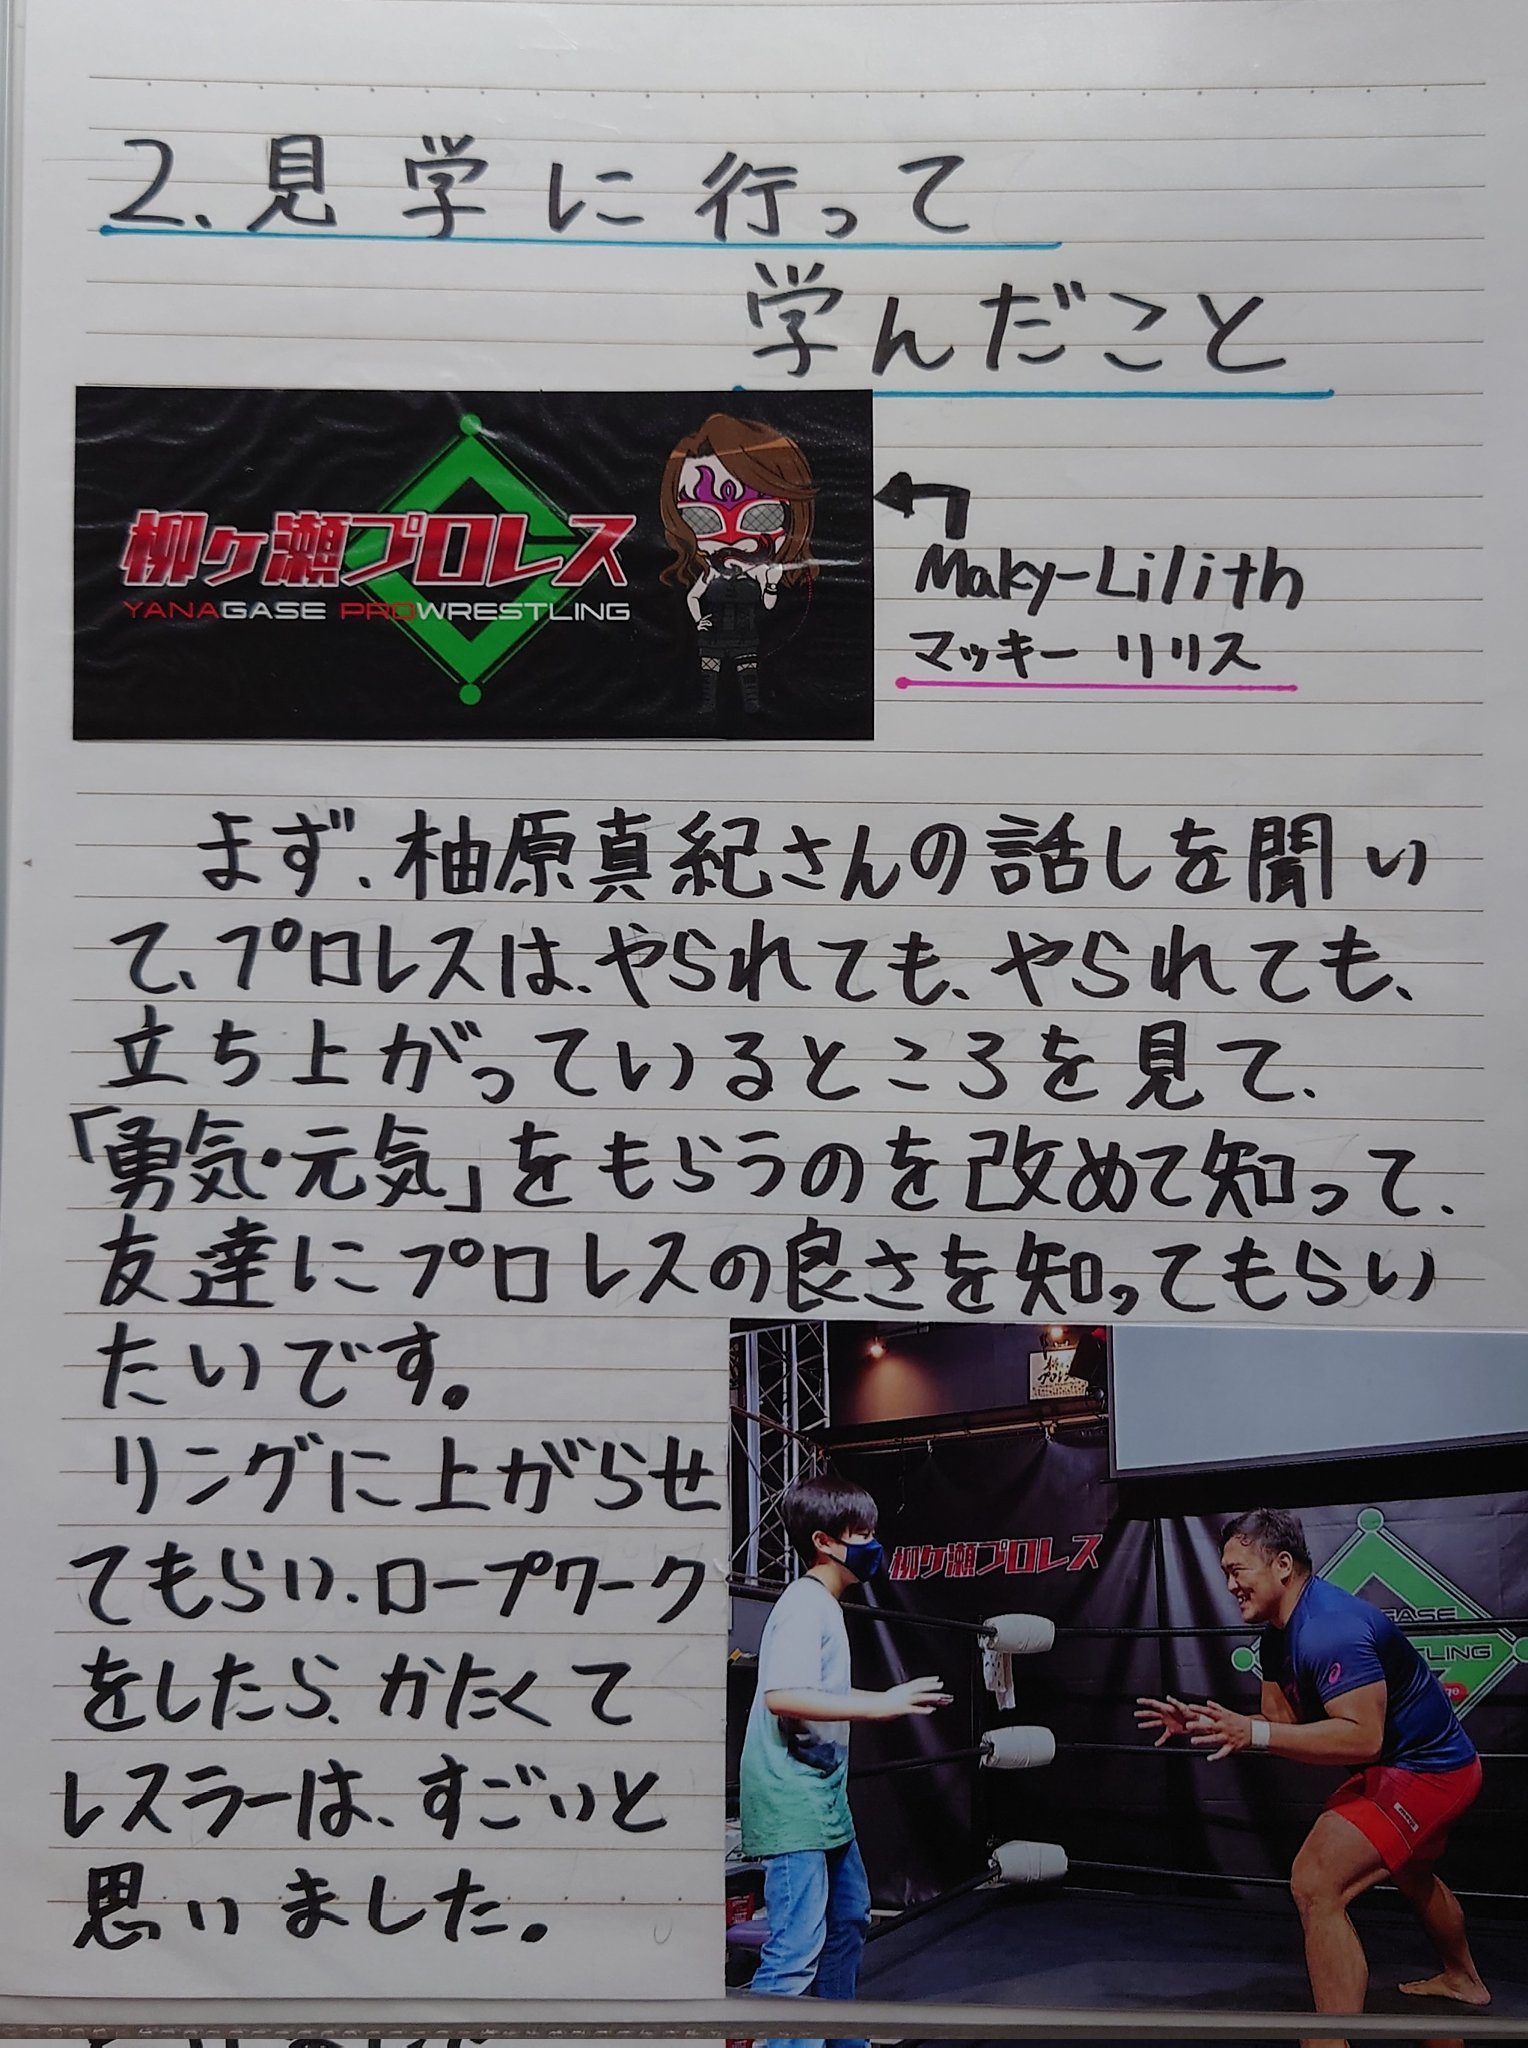 2.見学に行って
学んだこと
柳ヶ瀬プロレス
YANAGASE PROWRESTLING
Maky-Lilith
マッキーリリス
まず、柚原真紀さんの話しを聞い
て、プロレスは、やられても、やられても、
立ち上がっているところを見て、
「勇気・元気」をもらうのを改めて知って、
友達にプロレスの良さを知ってもらい
たいです。
リングに上がらせ
てもらい、ロープワーク
をしたら、かたくて
レスラーは、すごいと
思いました。
柳ヶ瀬プロレス
GASE